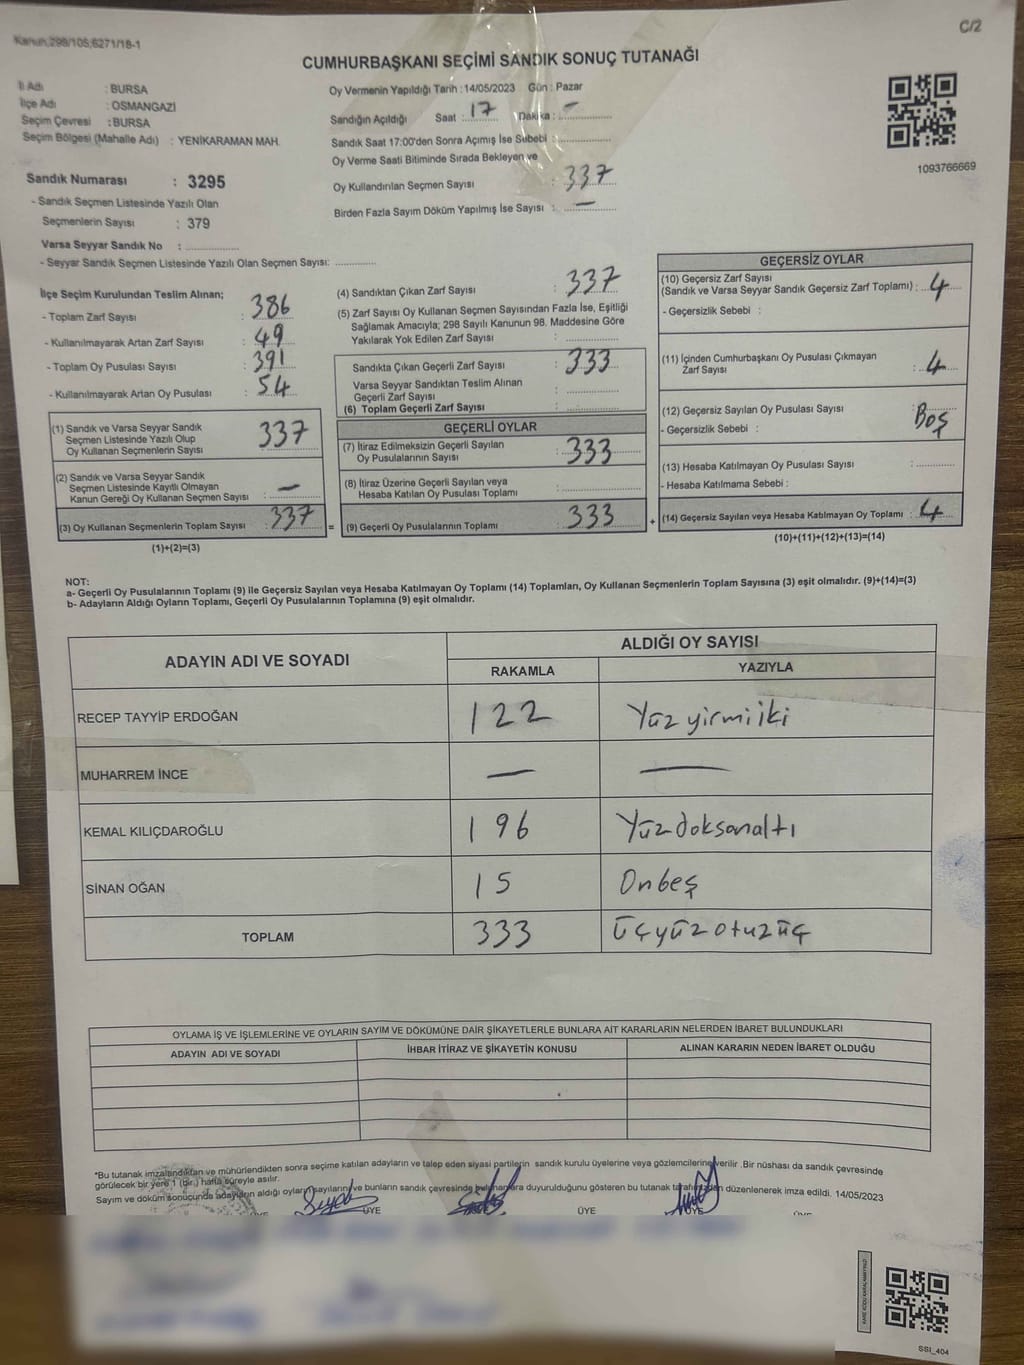 Kanun;298/105;6271/18-1
C/2
CUMHURBAŞKANI SEÇİMİ SANDIK SONUÇ TUTANAĞI
İl Adı : BURSA
İlçe Adı : OSMANGAZİ
Seçim Çevresi : BURSA
Seçim Bölgesi (Mahalle Adı) : YENİKARAMAN MAH.
Sandık Numarası : 3295
- Sandık Seçmen Listesinde Yazılı Olan
Seçmenlerin Sayısı : 379
Varsa Seyyar Sandık No : ..............
- Seyyar Sandık Seçmen Listesinde Yazılı Olan Seçmen Sayısı: ..............
Oy Vermenin Yapıldığı Tarih :14/05/2023 Gün : Pazar
Sandığın Açıldığı Saat : 17 Dakika : -
Sandık Saat 17:00'den Sonra Açımış İse Sebebi : ..............
Oy Verme Saati Bitiminde Sırada Bekleyen ve
Oy Kullandırılan Seçmen Sayısı : 337
Birden Fazla Sayım Döküm Yapılmış İse Sayısı : -
1093766669
İlçe Seçim Kurulundan Teslim Alınan;
- Toplam Zarf Sayısı : 386
- Kullanılmayarak Artan Zarf Sayısı : 49
- Toplam Oy Pusulası Sayısı : 391
- Kullanılmayarak Artan Oy Pusulası : 54
(1) Sandık ve Varsa Seyyar Sandık
Seçmen Listesinde Yazılı Olup
Oy Kullanan Seçmenlerin Sayısı : 337
(2) Sandık ve Varsa Seyyar Sandık
Seçmen Listesinde Kayıtlı Olmayan
Kanun Gereği Oy Kullanan Seçmen Sayısı : -
(3) Oy Kullanan Seçmenlerin Toplam Sayısı : 337 =
(1)+(2)=(3)
(4) Sandıktan Çıkan Zarf Sayısı : 337
(5) Zarf Sayısı Oy Kullanan Seçmen Sayısından Fazla İse, Eşitliği
Sağlamak Amacıyla; 298 Sayılı Kanunun 98. Maddesine Göre
Yakılarak Yok Edilen Zarf Sayısı : ..............
Sandıkta Çıkan Geçerli Zarf Sayısı : 333
Varsa Seyyar Sandıktan Teslim Alınan
Geçerli Zarf Sayısı : ..............
(6) Toplam Geçerli Zarf Sayısı : ..............
GEÇERLİ OYLAR
(7) İtiraz Edilmeksizin Geçerli Sayılan
Oy Pusulalarının Sayısı : 333
(8) İtiraz Üzerine Geçerli Sayılan veya
Hesaba Katılan Oy Pusulası Toplamı : ..............
(9) Geçerli Oy Pusulalarının Toplamı : 333 +
GEÇERSİZ OYLAR
(10) Geçersiz Zarf Sayısı
(Sandık ve Varsa Seyyar Sandık Geçersiz Zarf Toplamı) : 4
- Geçersizlik Sebebi :
(11) İçinden Cumhurbaşkanı Oy Pusulası Çıkmayan
Zarf Sayısı : 4
(12) Geçersiz Sayılan Oy Pusulası Sayısı : Boş
- Geçersizlik Sebebi :
(13) Hesaba Katılmayan Oy Pusulası Sayısı : ..............
- Hesaba Katılmama Sebebi :
(14) Geçersiz Sayılan veya Hesaba Katılmayan Oy Toplamı : 4
(10)+(11)+(12)+(13)=(14)
NOT:
a- Geçerli Oy Pusulalarının Toplamı (9) ile Geçersiz Sayılan veya Hesaba Katılmayan Oy Toplamı (14) Toplamları, Oy Kullanan Seçmenlerin Toplam Sayısına (3) eşit olmalıdır. (9)+(14)=(3)
b- Adayların Aldığı Oyların Toplamı, Geçerli Oy Pusulalarının Toplamına (9) eşit olmalıdır.
ADAYIN ADI VE SOYADI
ALDIĞI OY SAYISI
RAKAMLA YAZIYLA
RECEP TAYYİP ERDOĞAN 122 Yüz yirmi iki
MUHARREM İNCE — —
KEMAL KILIÇDAROĞLU 196 Yüz doksan altı
SİNAN OĞAN 15 Onbeş
TOPLAM 333 Üçyüz otuz üç
OYLAMA İŞ VE İŞLEMLERİNE VE OYLARIN SAYIM VE DÖKÜMÜNE DAİR ŞİKAYETLERLE BUNLARA AİT KARARLARIN NELERDEN İBARET BULUNDUKLARI
ADAYIN ADI VE SOYADI İHBAR İTİRAZ VE ŞİKAYETİN KONUSU ALINAN KARARIN NEDEN İBARET OLDUĞU
*Bu tutanak imzalandıktan ve mühürlendikten sonra seçime katılan adayların ve talep eden siyasi partilerin sandık kurulu üyelerine veya gözlemcilerine verilir .Bir nüshası da sandık çevresinde
görülecek bir yere 1 (bir) hafta süreyle asılır.
Sayım ve döküm sonucunda adayların aldığı oyların sayılarını ve bunların sandık çevresinde bulunanlara duyurulduğunu gösteren bu tutanak tarafımızdan düzenlenerek imza edildi. 14/05/2023
ÜYE ÜYE ÜYE
KARE KODU KARALAMAYINIZ!
SSI_404